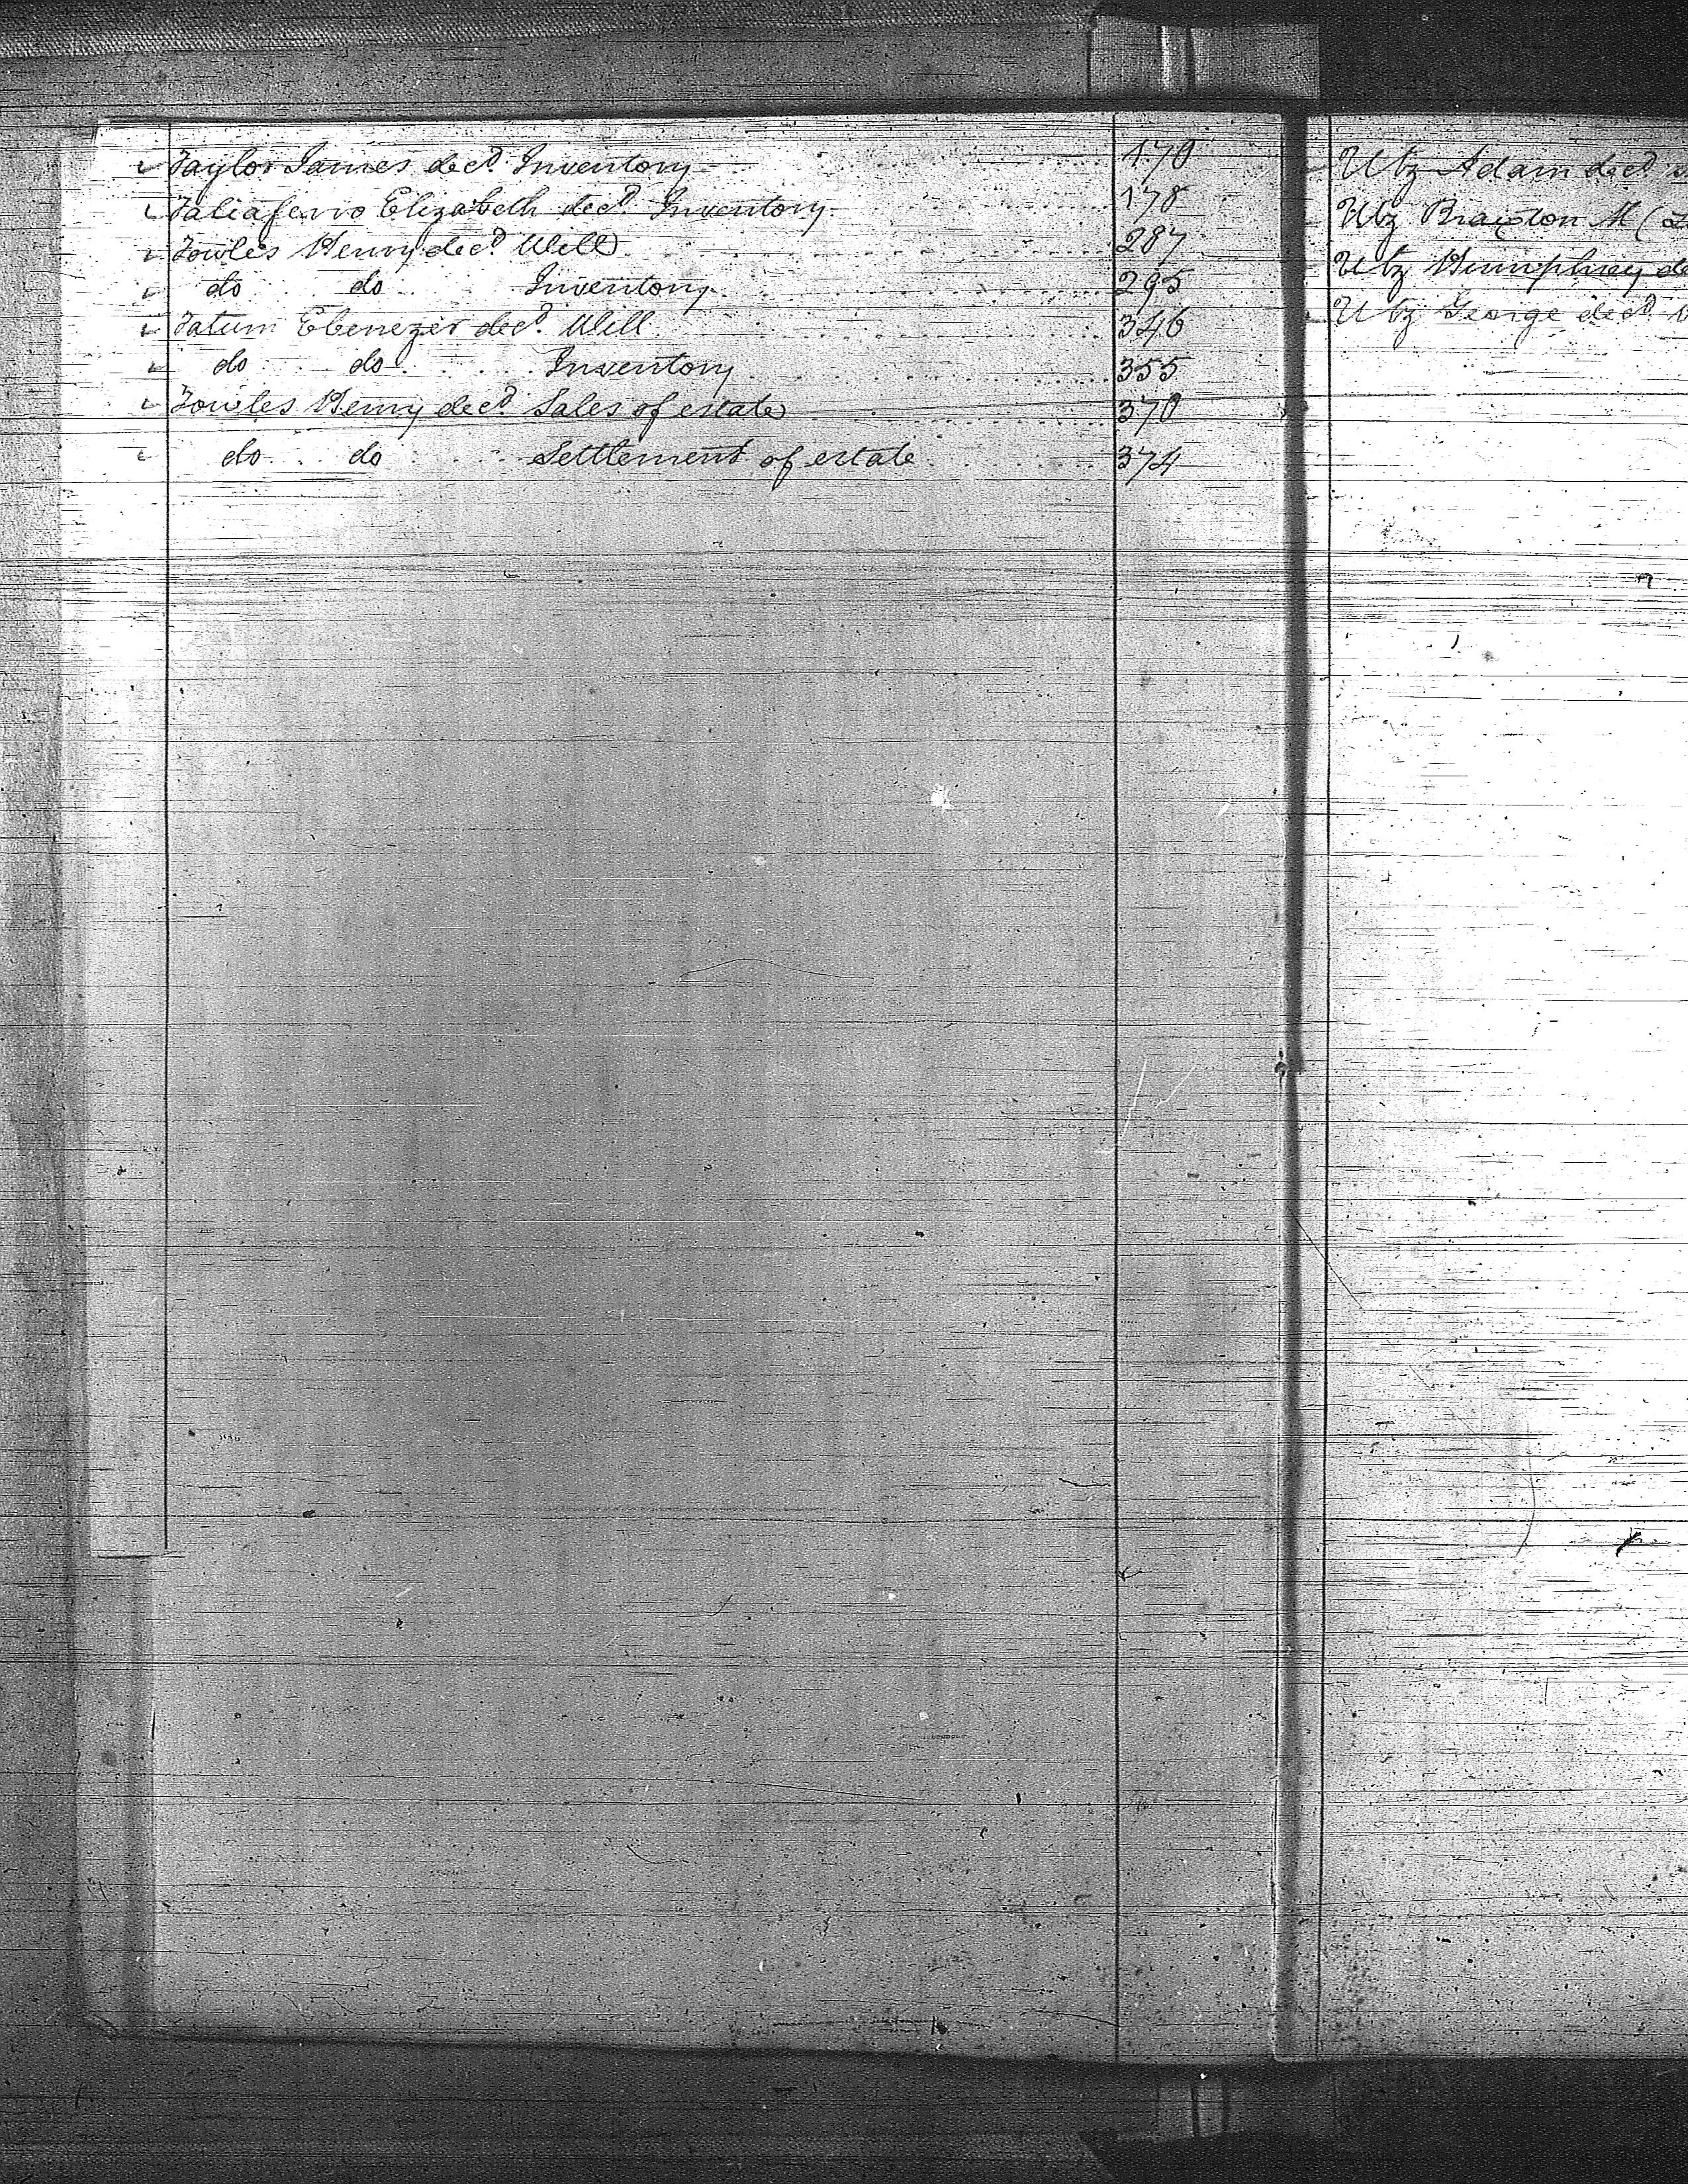 Taylor James decd. Inventory 170
Taliaferro Elizabeth decd. Inventory 178
Towles Henry decd. Will 287
do do Inventory 295
Tatum Ebenezer decd. Will 346
do do Inventory 355
Towles Henry decd. Sales of estate 370
do do Settlement of estate 374
Utz Adam decd
Utz Braxton M (
Utz Humphrey de
Utz George decd